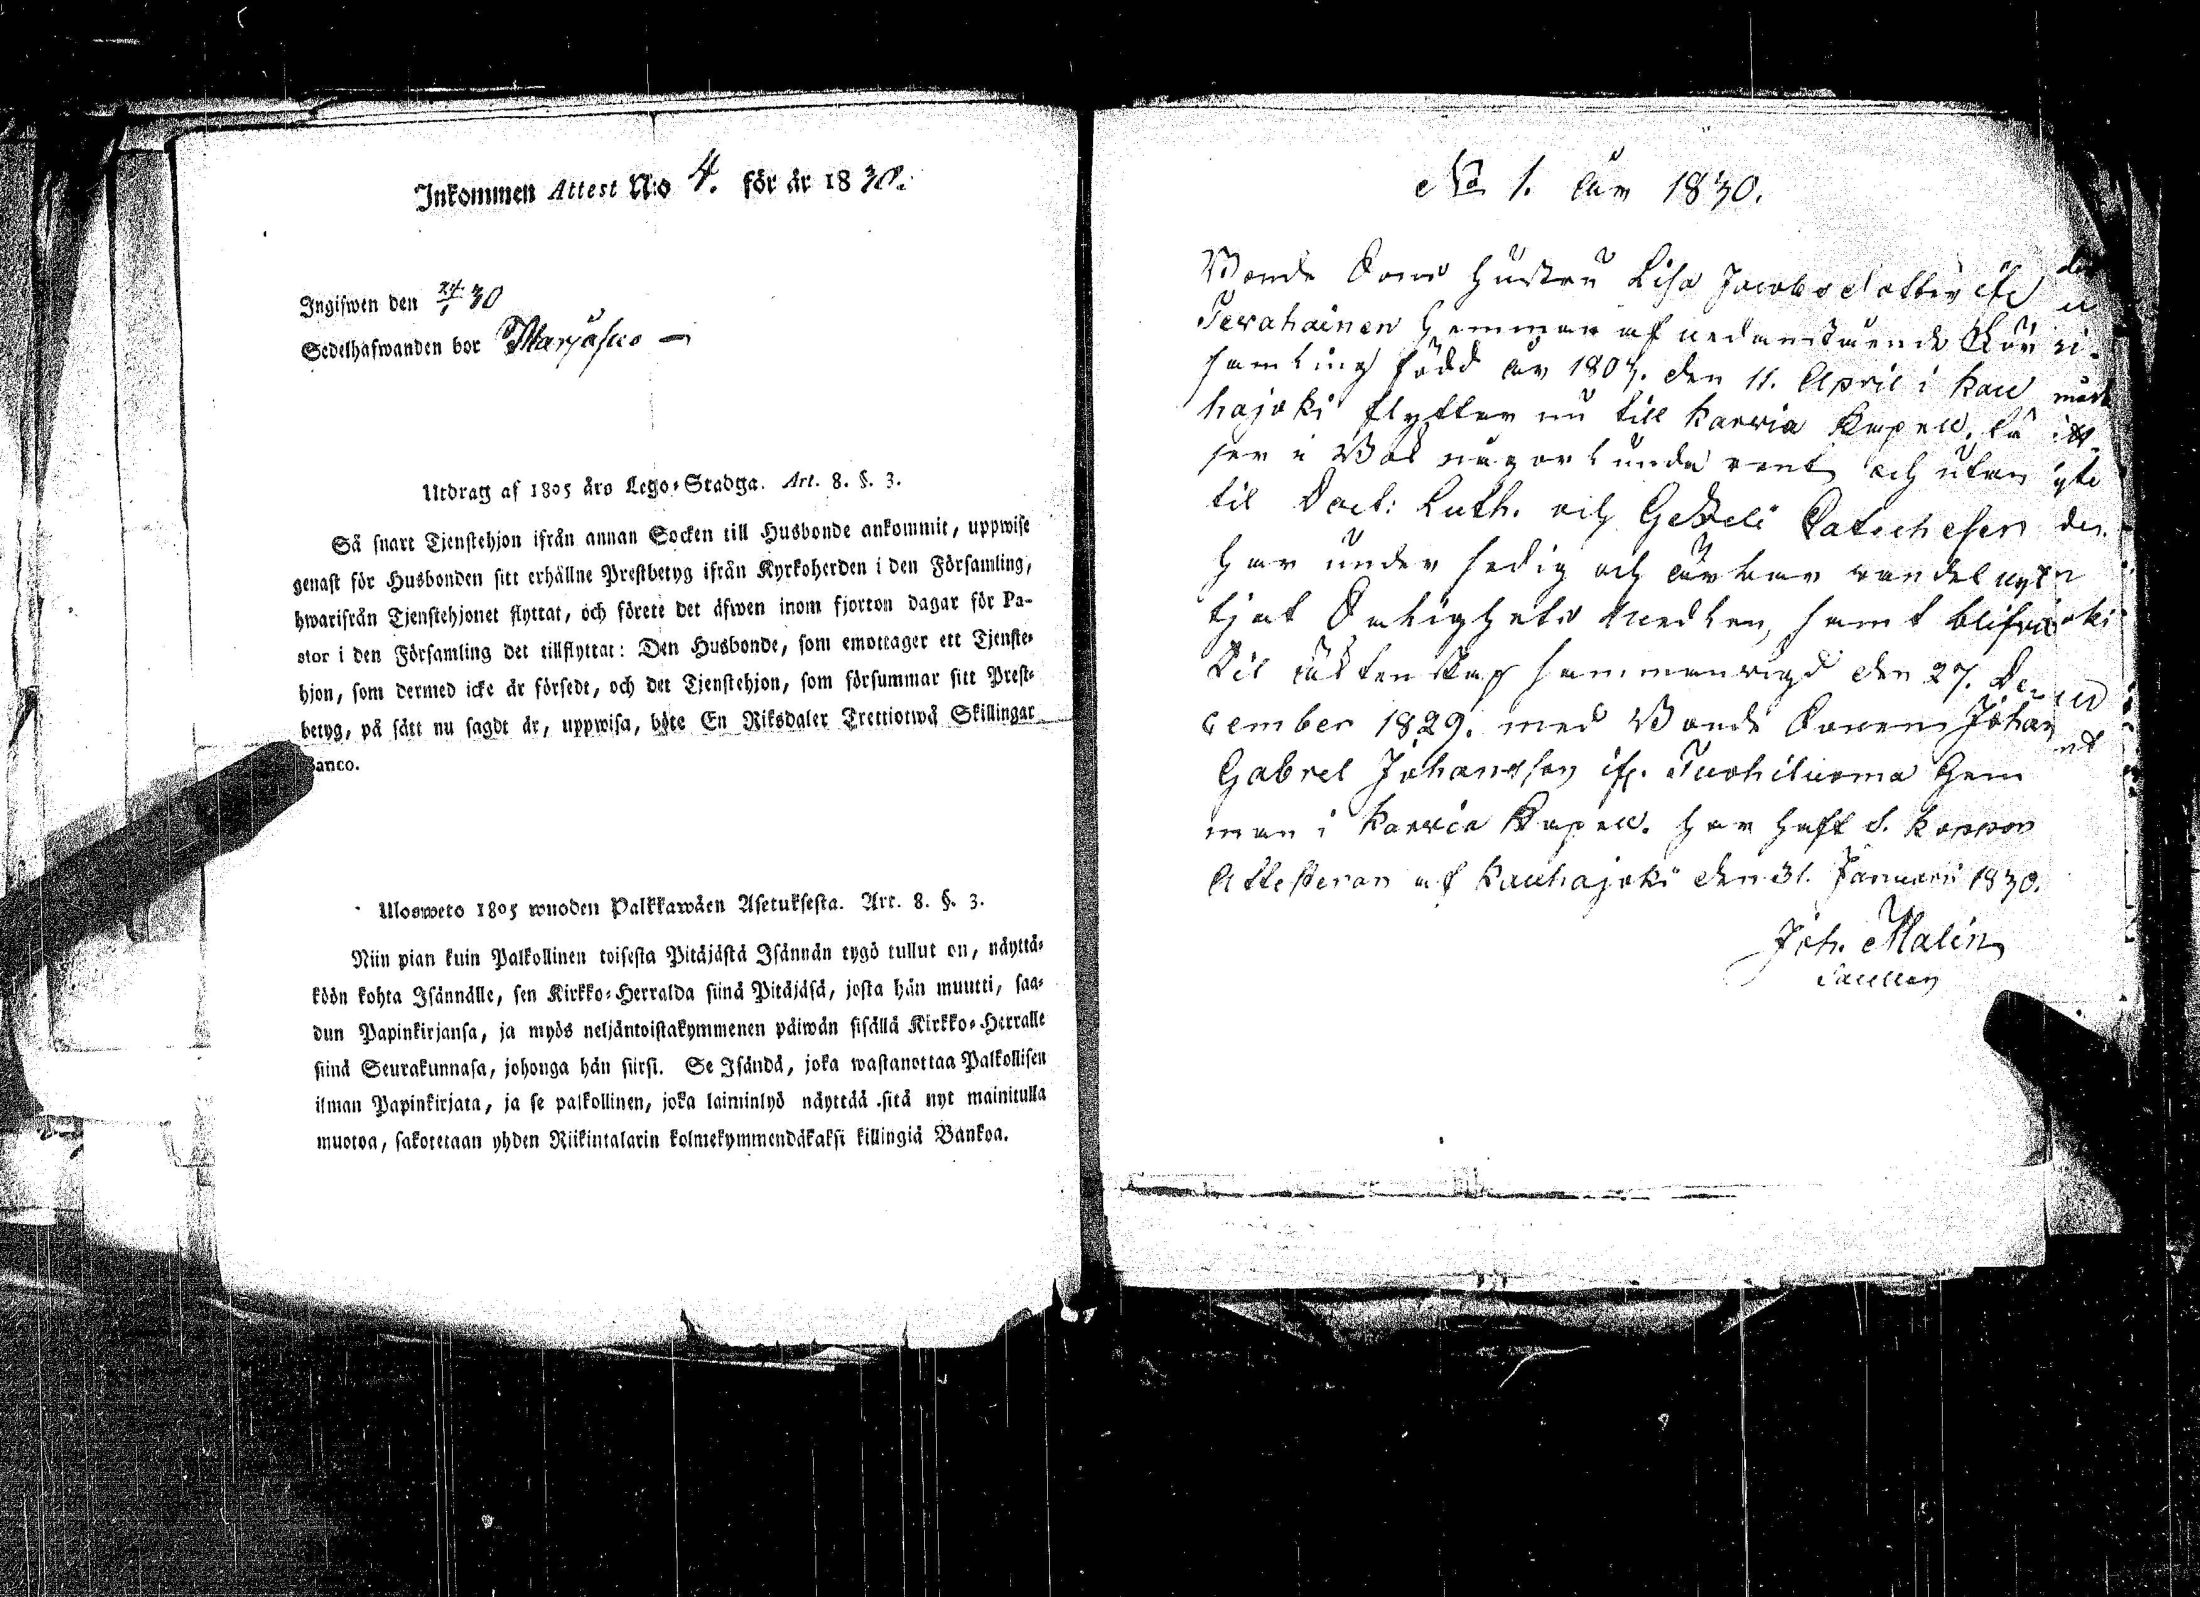 Inkommen Attest N:o 4. för år 1830.
Ingifwen den 24/1 30
Sedelhafwanden bor
Utdrag af 1805 års Lego-Stadga. Art. 8. §. 3.
Så snart Tjenstehjon ifrån annan Socken till Husbonde ankommit, uppwise
genast för Husbonden sitt erhållne Prestbetyg ifrån Kyrkoherden i den Församling,
hwarifrån Tjenstehjonet flyttat, och förete det äfwen inom fjorton dagar för Pa-
stor i den Församling det tillflyttat: Den Husbonde, som emottager ett Tjenste-
hjon, som dermed icke är försedt, och det Tjenstehjon, som försummar sitt Prest-
betyg, på sätt nu sagdt är, uppwisa, böte En Riksdaler Trettiotwå Skillingar
Banco.
Ulosweto 1805 wuoden Palkkawäen Asetuksesta. Art. 8. §. 3.
Niin pian kuin Palkollinen toisesta Pitäjästä Isännän tygö tullut on, näyttä-
köön kohta Isännälle, sen Kirkko-Herralda siinä Pitäjäsä, josta hän muutti, saa-
dun Papinkirjansa, ja myös neljäntoistakymmenen päiwän sisällä Kirkko-Herralle
siinä Seurakunnasa, johonga hän siirsi. Se Isändä, joka wastanottaa Palkollisen
ilman Papinkirjata, ja se palkollinen, joka laiminlyö näyttää sitä nyt mainitulla
muotoa, sakotetaan yhden Riikintalarin kolmekymmendäkaksi killingiä Bankoa.
No 1. år 1830.
Bonde Hustru Lisa Jacobsdotter ifr
Terahainen Hemman af nedanstående För
samling född år 1807. den 11. April i Kau
hajoki flyttar nu till Karvia Kapell. Lä
ser i Bok någorlunda rent och utan
til Doct: Luth. och Gezelii Catechesen
har under sedig och ärbar wandel nyt
tjat Salighets Medlen, samt blifwit
til äktenskap sammanvigd den 27. De
cember 1829. med Bonde Sonen Johan
Gabriel Johansson ifr. Tuohiluoma Hem
man i Karvia Kapell. har haft s. koppor
Attesteras af Kauhajoki den 31. Januarii 1830.
Joh. Malin